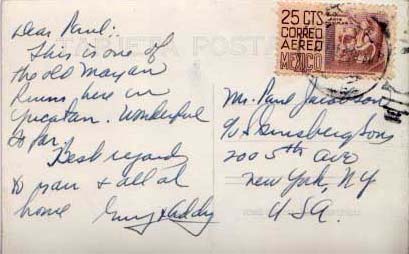 TARJETA POSTAL
25 CTS
CORREO
AEREO
MEXICO
Dear Paul:
This is one of
the old Mayan
Ruins here in
Yucatan. Wonderful
so far.
Best regards
to you + all at
home
Mr. Paul Jacobson
200 5th Ave
New York, NY
USA.